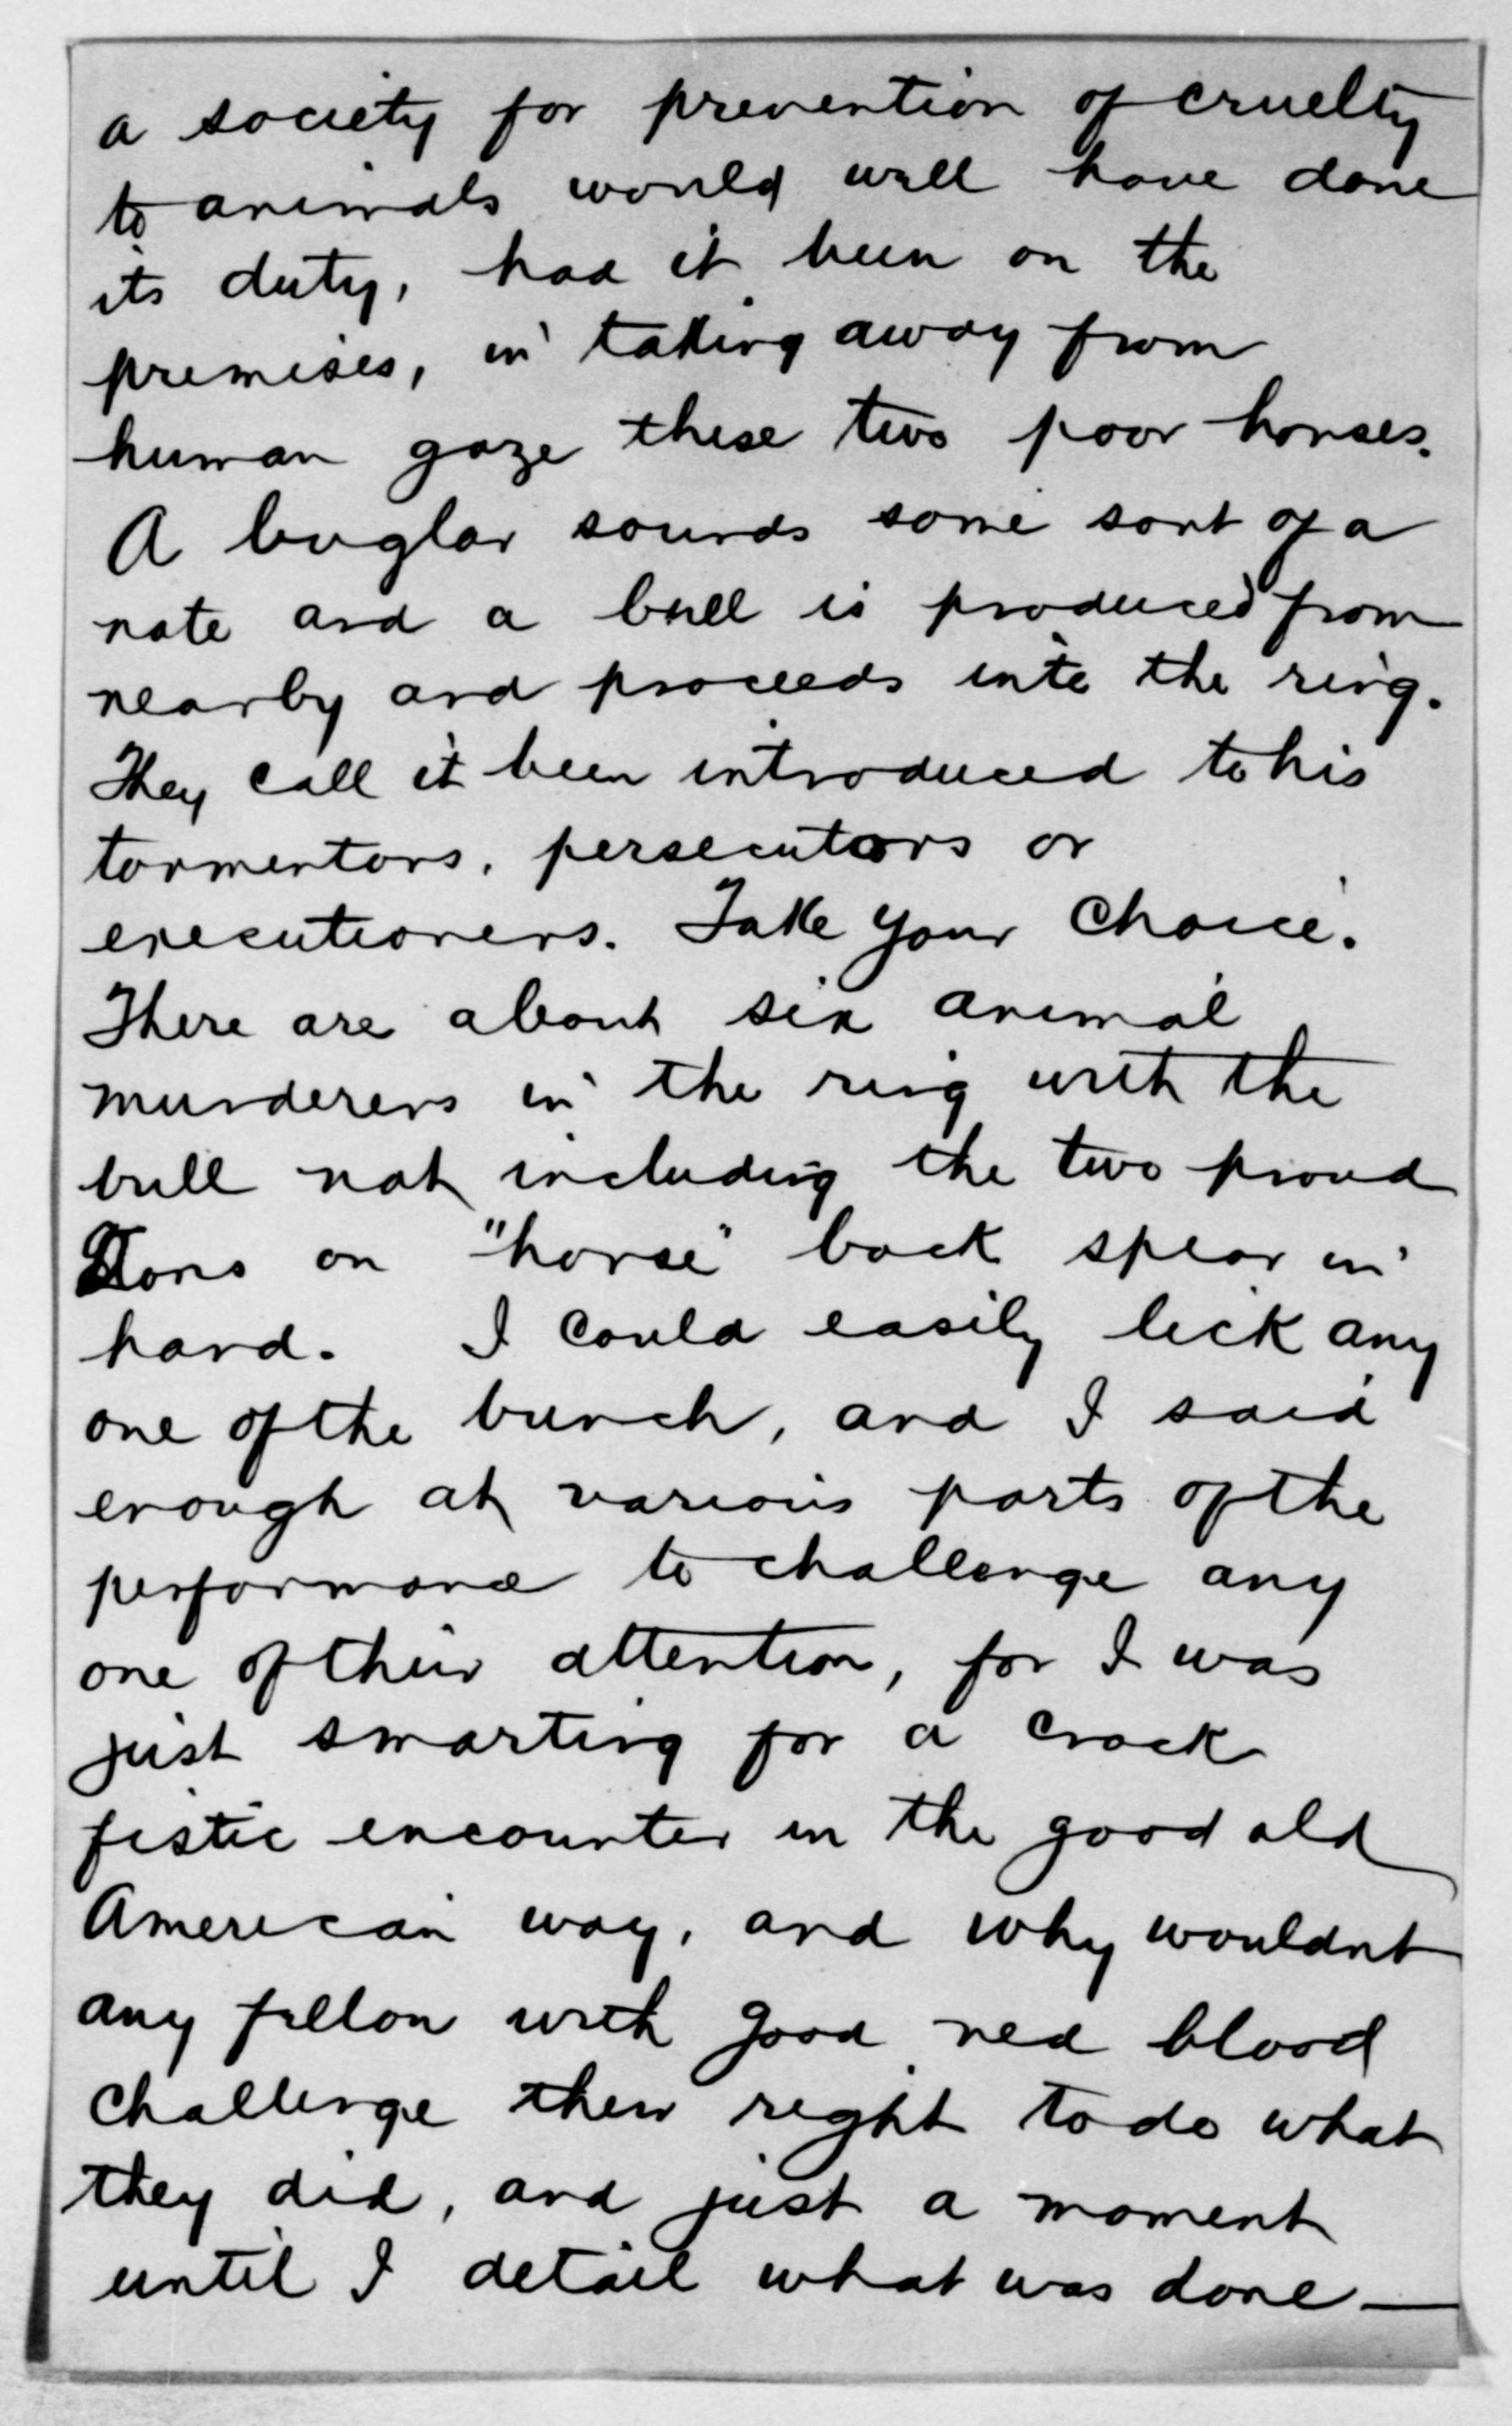 a society for prevention of cruelty
to animals would well have done
its duty, had it been on the
premises, in taking away from
human gaze these two poor horses.
A buglar sounds some sort of a
note and a bull is produced from
nearby and proceeds into the ring.
They call it been introduced to his
tormentors, persecutors or
executioners. Take your choice.
There are about six animal
murderers in the ring with the
bull not including the two proud
Dons on "horse" back spear in
hand. I could easily lick any
one of the bunch, and I said
enough at various parts of the
performance to challenge any
one of their attention, for I was
just smarting for a crack
fistic encounter in the good old
American way, and why wouldnt
any fellow with good red blood
challenge their right to do what
they did, and just a moment
until I detail what was done —